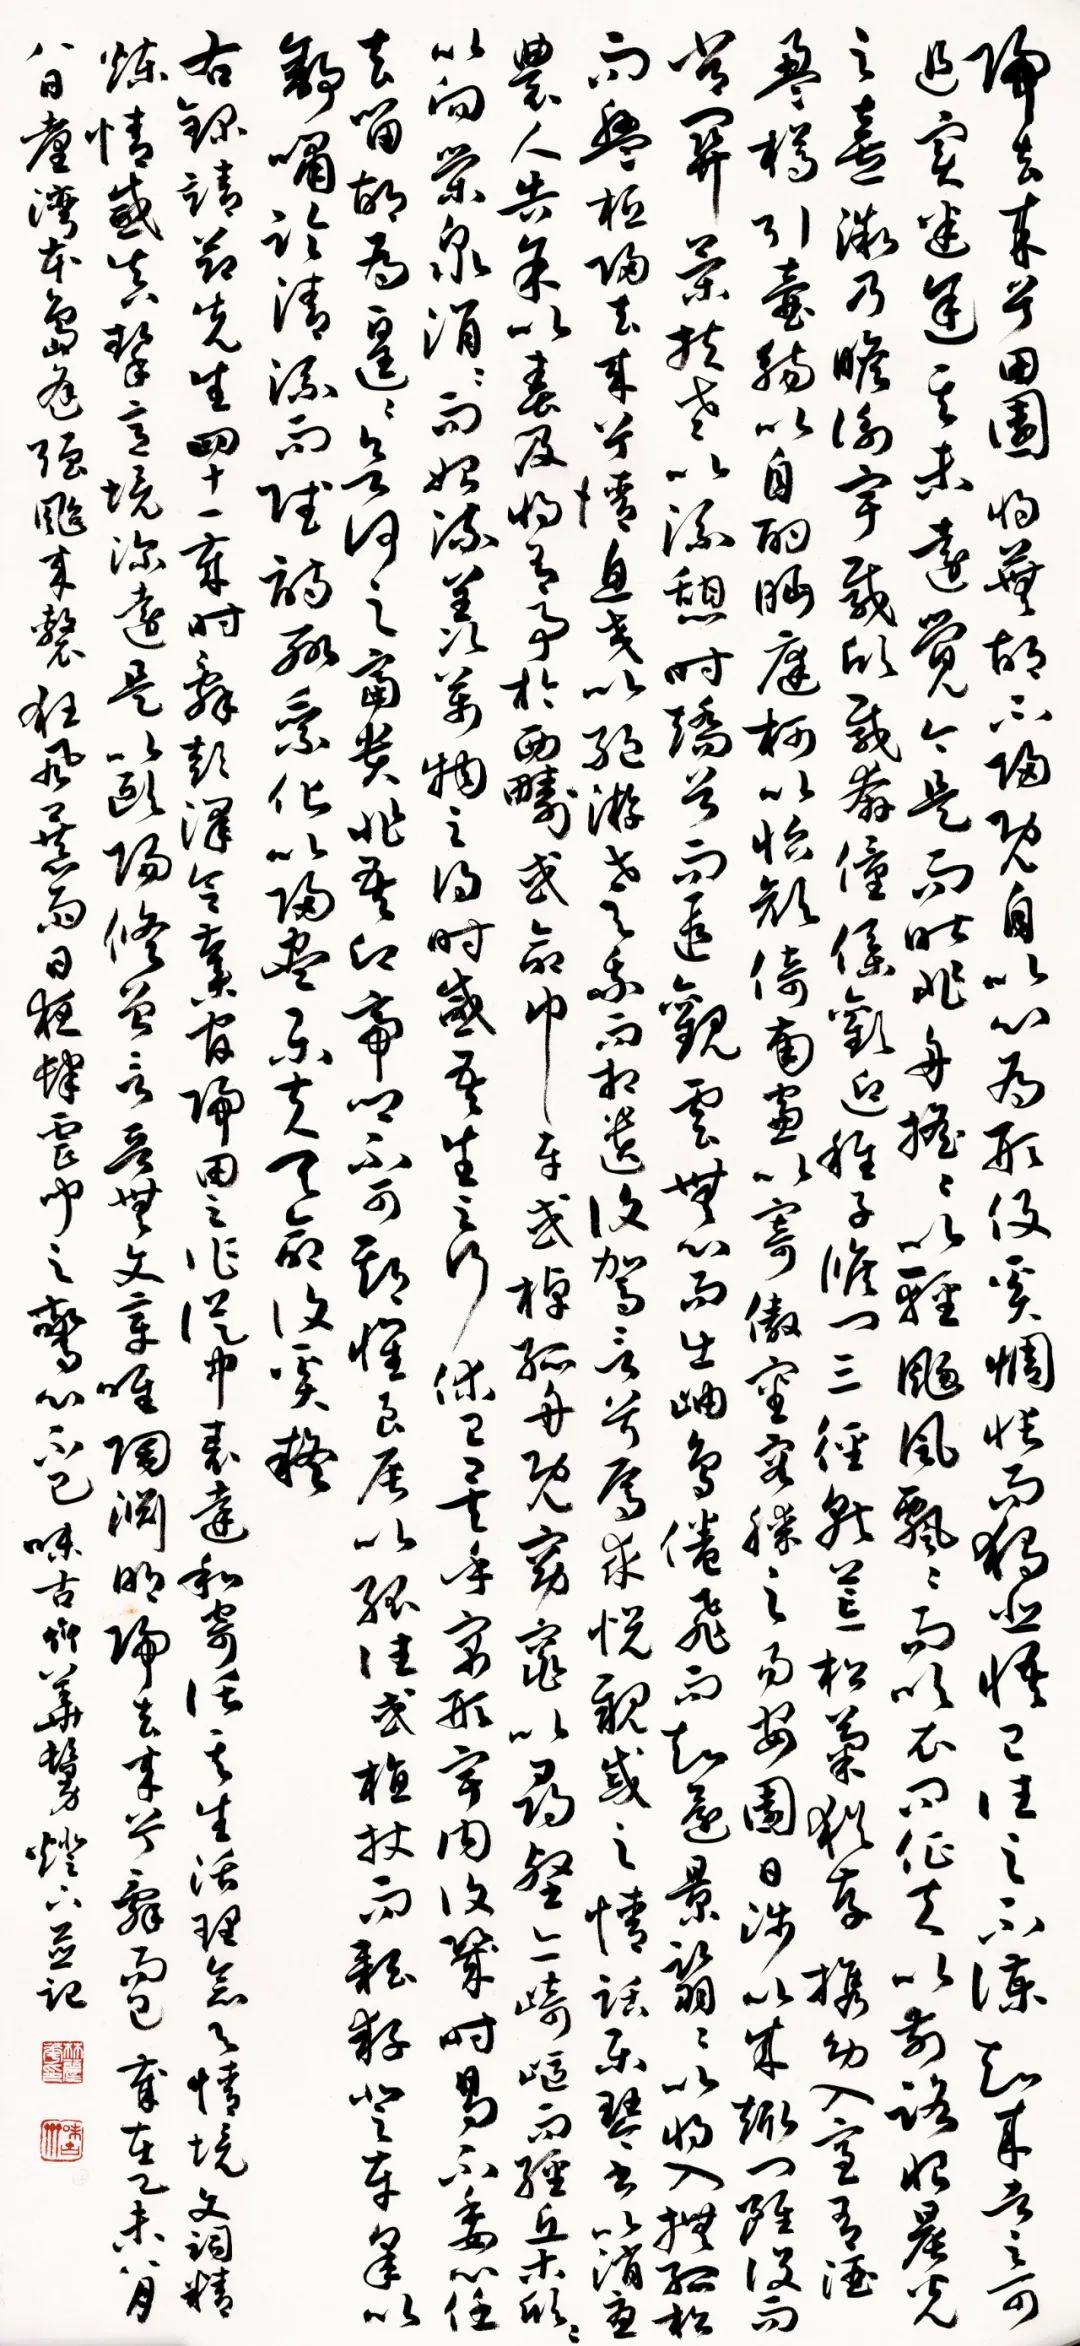 歸去來兮田園將蕪胡不歸既自以心為形役奚惆悵而獨悲悟已往之不諫知來者之可
追實迷途其未遠覺今是而昨非舟搖〻以輕颺風飄〻而吹衣問征夫以前路恨晨光
之熹微乃瞻衡宇載欣載奔僮僕歡迎稚子候門三徑就荒松菊猶存攜幼入室有酒
盈樽引壺觴以自酌眄庭柯以怡顏倚南窗以寄傲審容膝之易安園日涉以成趣門雖設而
常關策扶老以流憩時矯首而遐觀雲無心而出岫鳥倦飛而知還景翳〻以將入撫孤松
而盤桓歸去來兮請息交以絕游世與我而相遺復駕言兮焉求悅親戚之情話樂琴書以消憂
農人告余以春及將有事於西疇或命巾車或棹孤舟既窈窕以尋壑亦崎嶇而經丘木欣〻
以向榮泉涓〻而始流羨萬物之得時感吾生之行休已矣乎寓形宇內復幾時曷不委心任
去留胡為遑〻欲何之富貴非吾願帝鄉不可期懷良辰以孤往或植杖而耘耔登東皋以
舒嘯臨清流而賦詩聊乘化以歸盡樂夫天命復奚疑
右錄靖節先生四十一歲時辭彭澤令棄官歸田之作從中表達和寄活其生活理念與情境文詞精
煉情感真摯意境深遠是以歐陽修曾言晉無文章唯陶淵明歸去來兮辭而已 歲在乙未八月
八日臺灣本島逢強颱來襲狂風暴雨日夜肆虐聞之驚心不已 味古 燈下並記